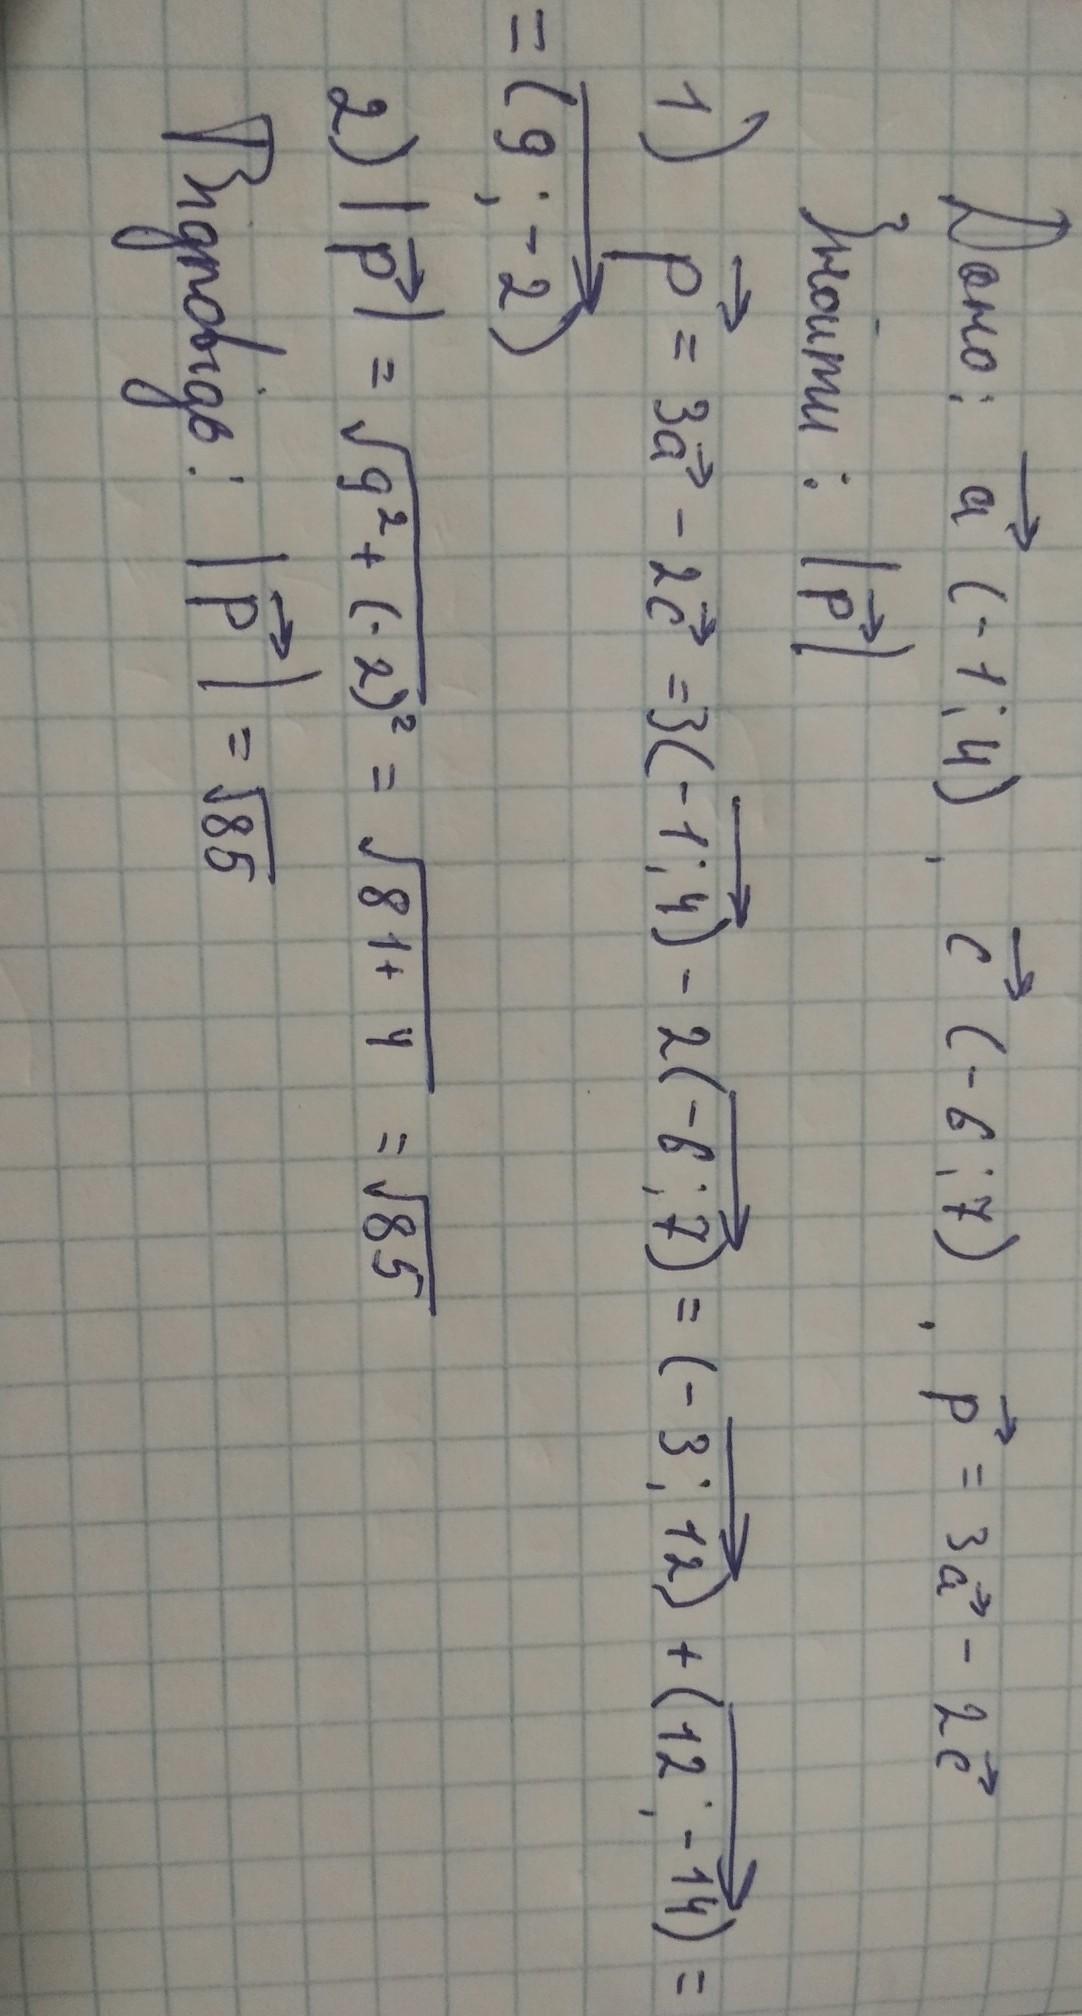 Дано: a⃗ (-1; 4), c⃗ (-6; 7), p⃗ = 3a⃗ - 2c⃗
Знайти: |p⃗|
1) p⃗ = 3a⃗ - 2c⃗ = 3(-1; 4) - 2(-6; 7) = (-3; 12) + (12; -14) =
= (9; -2)
2) |p⃗| = √9² + (-2)² = √81 + 4 = √85
Відповідь: |p⃗| = √85